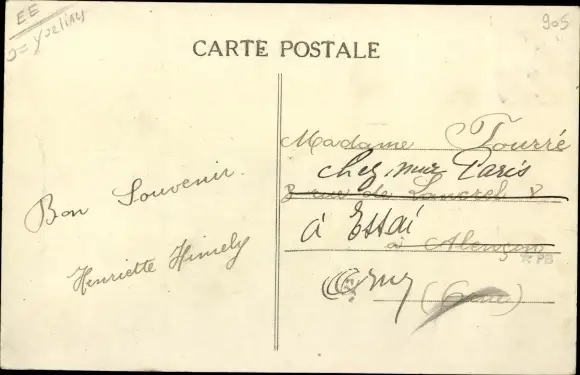 EE
905
CARTE POSTALE
Madame Tourré
chez Mme Paris
8 rue de Lancrel 8
à Essai
à Alençon
Orne (Orne)
Bon Souvenir.
Henriette Himely